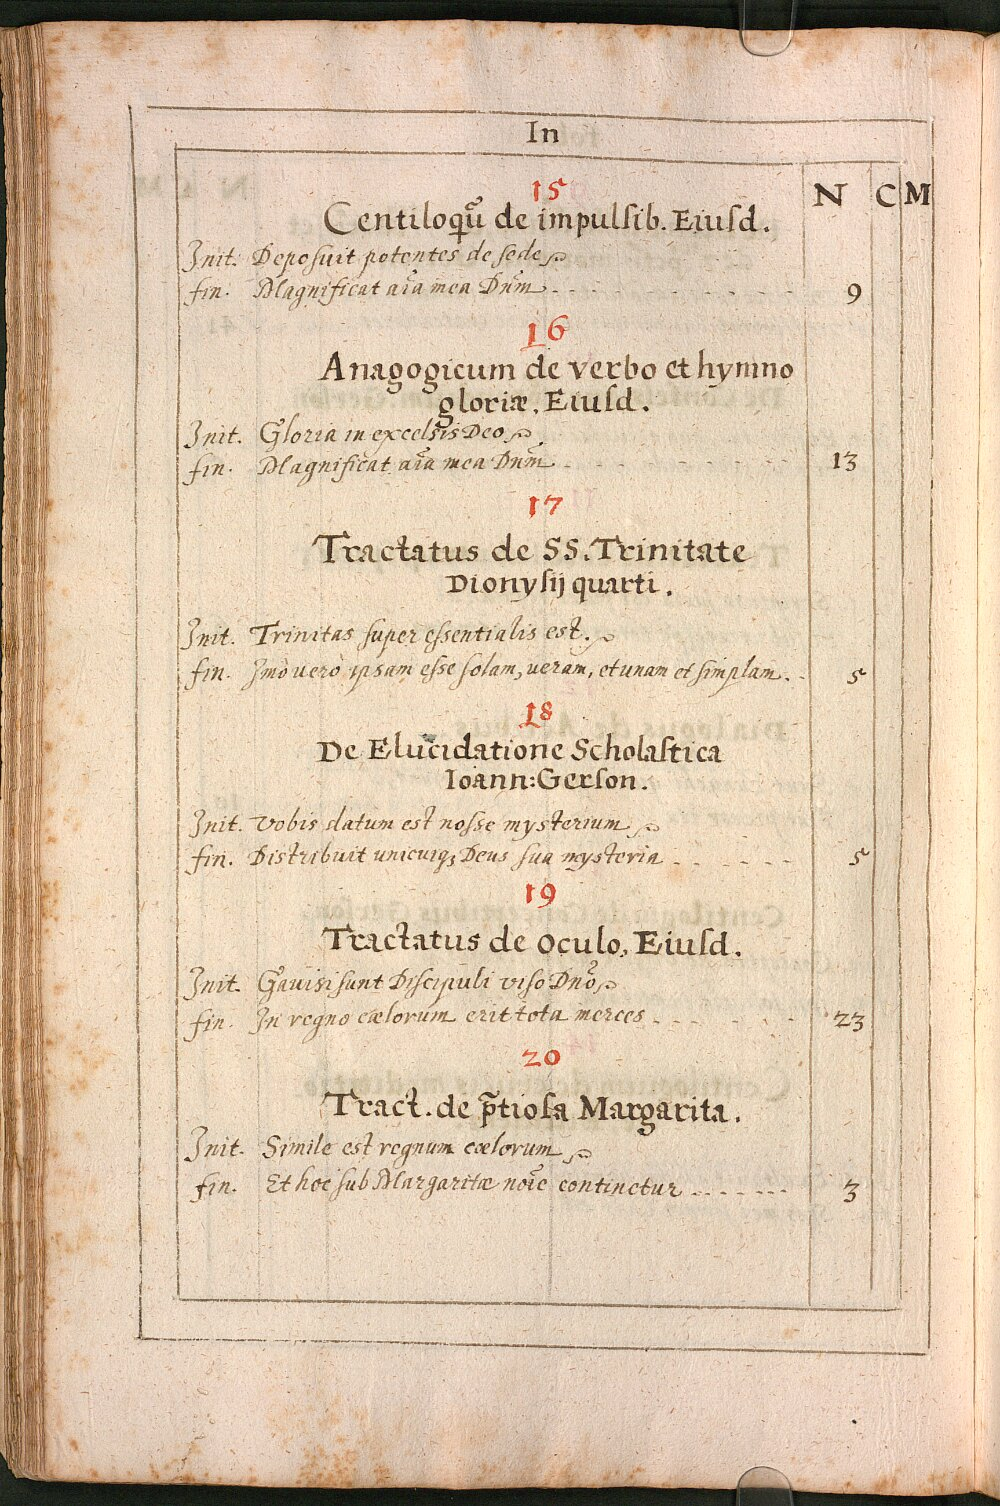 In
N C M
15
Centiloqũ de impulsib. Eiusd.
Init. Deposuit potentes de sede
fin. Magnificat aĩa mea Dñm 9
16
Anagogicum de verbo et hymno
gloriæ, Eiusd.
Init. Gloria in excelsis Deo
fin. Magnificat aĩa mea Dñm 13
17
Tractatus de SS. Trinitate
Dionysij quarti.
Init. Trinitas super essentialis est.
fin. Imò verò ipsam esse solam, veram, et unam et simplam. 5
18
De Elucidatione Scholastica
Ioann: Gerson.
Init. Vobis datum est nosse mysterium
fin. Distribuit unicuiq; Deus sua mysteria 5
19
Tractatus de oculo, Eiusd.
Init. Gavisi sunt Discipuli viso Dño
fin. In regno cœlorum erit tota merces 23
20
Tract. de p̃tiosa Margarita.
Init. Simile est regnum cœlorum
fin. Et hoc sub Margaritæ noĩe continetur 3